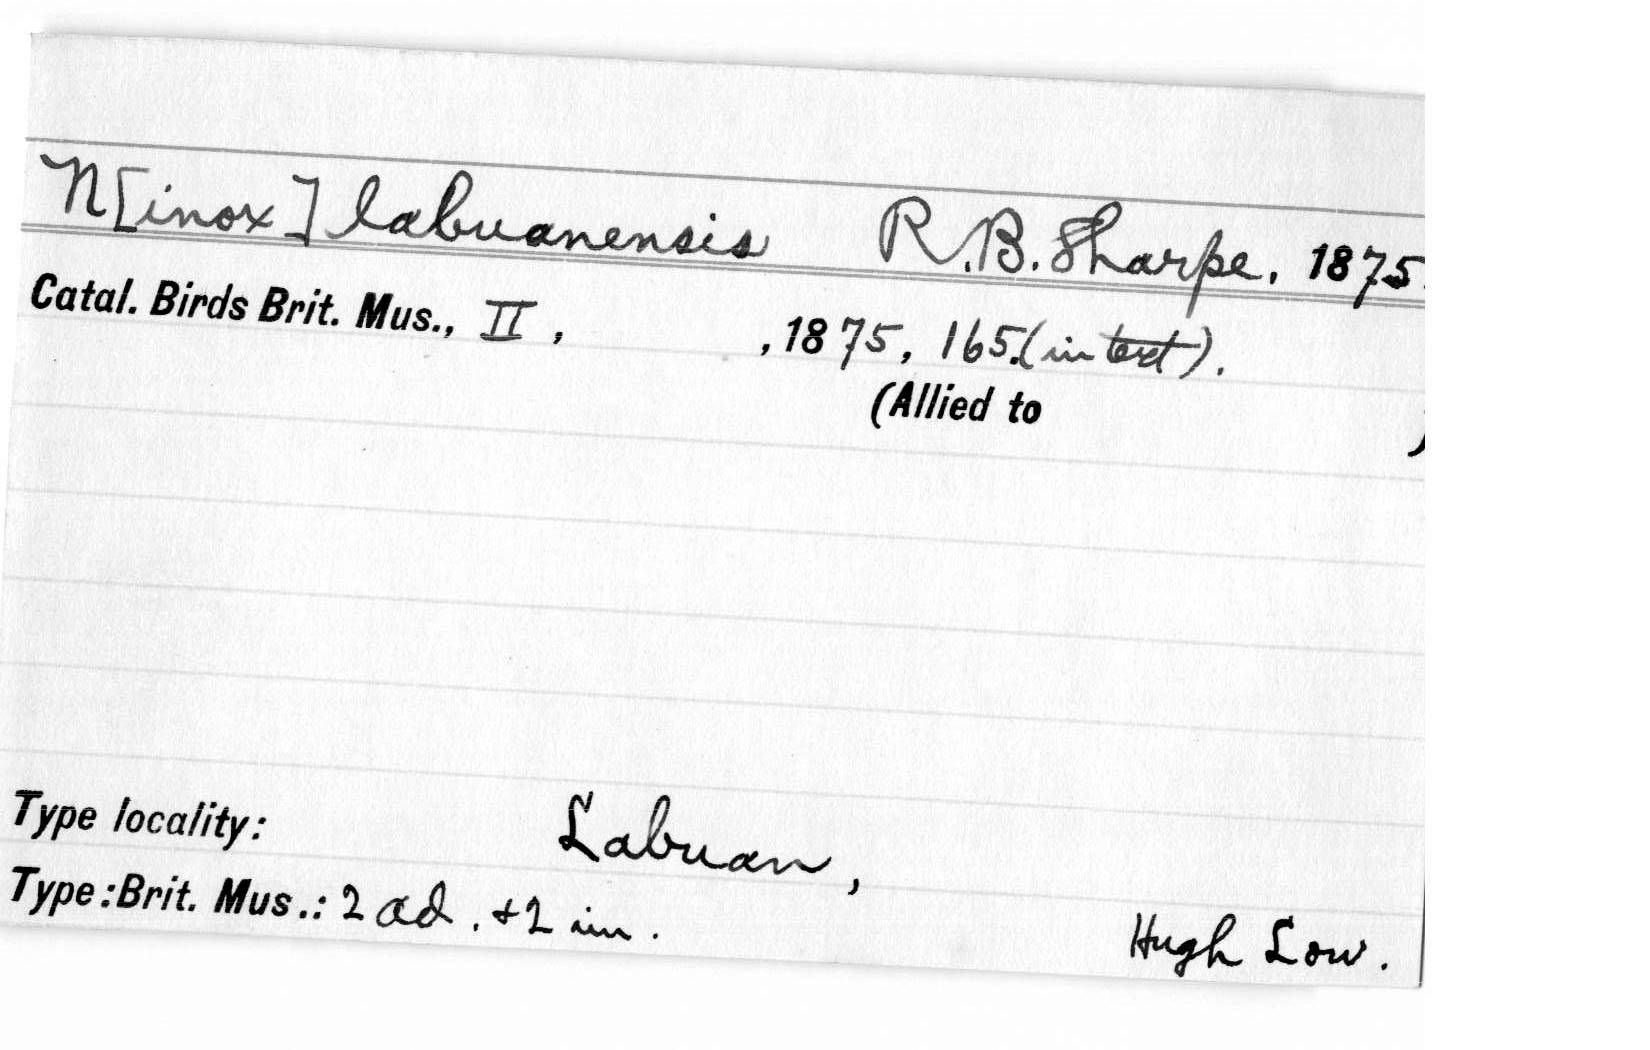 N[inox] labuanensis R.B. Sharpe, 1875.
Catal. Birds Brit. Mus., II, , 1875, 165. (in text).
(Allied to )
Type locality: Labuan,
Type: Brit. Mus.: 2 ad. + 2 im.
Hugh Low.